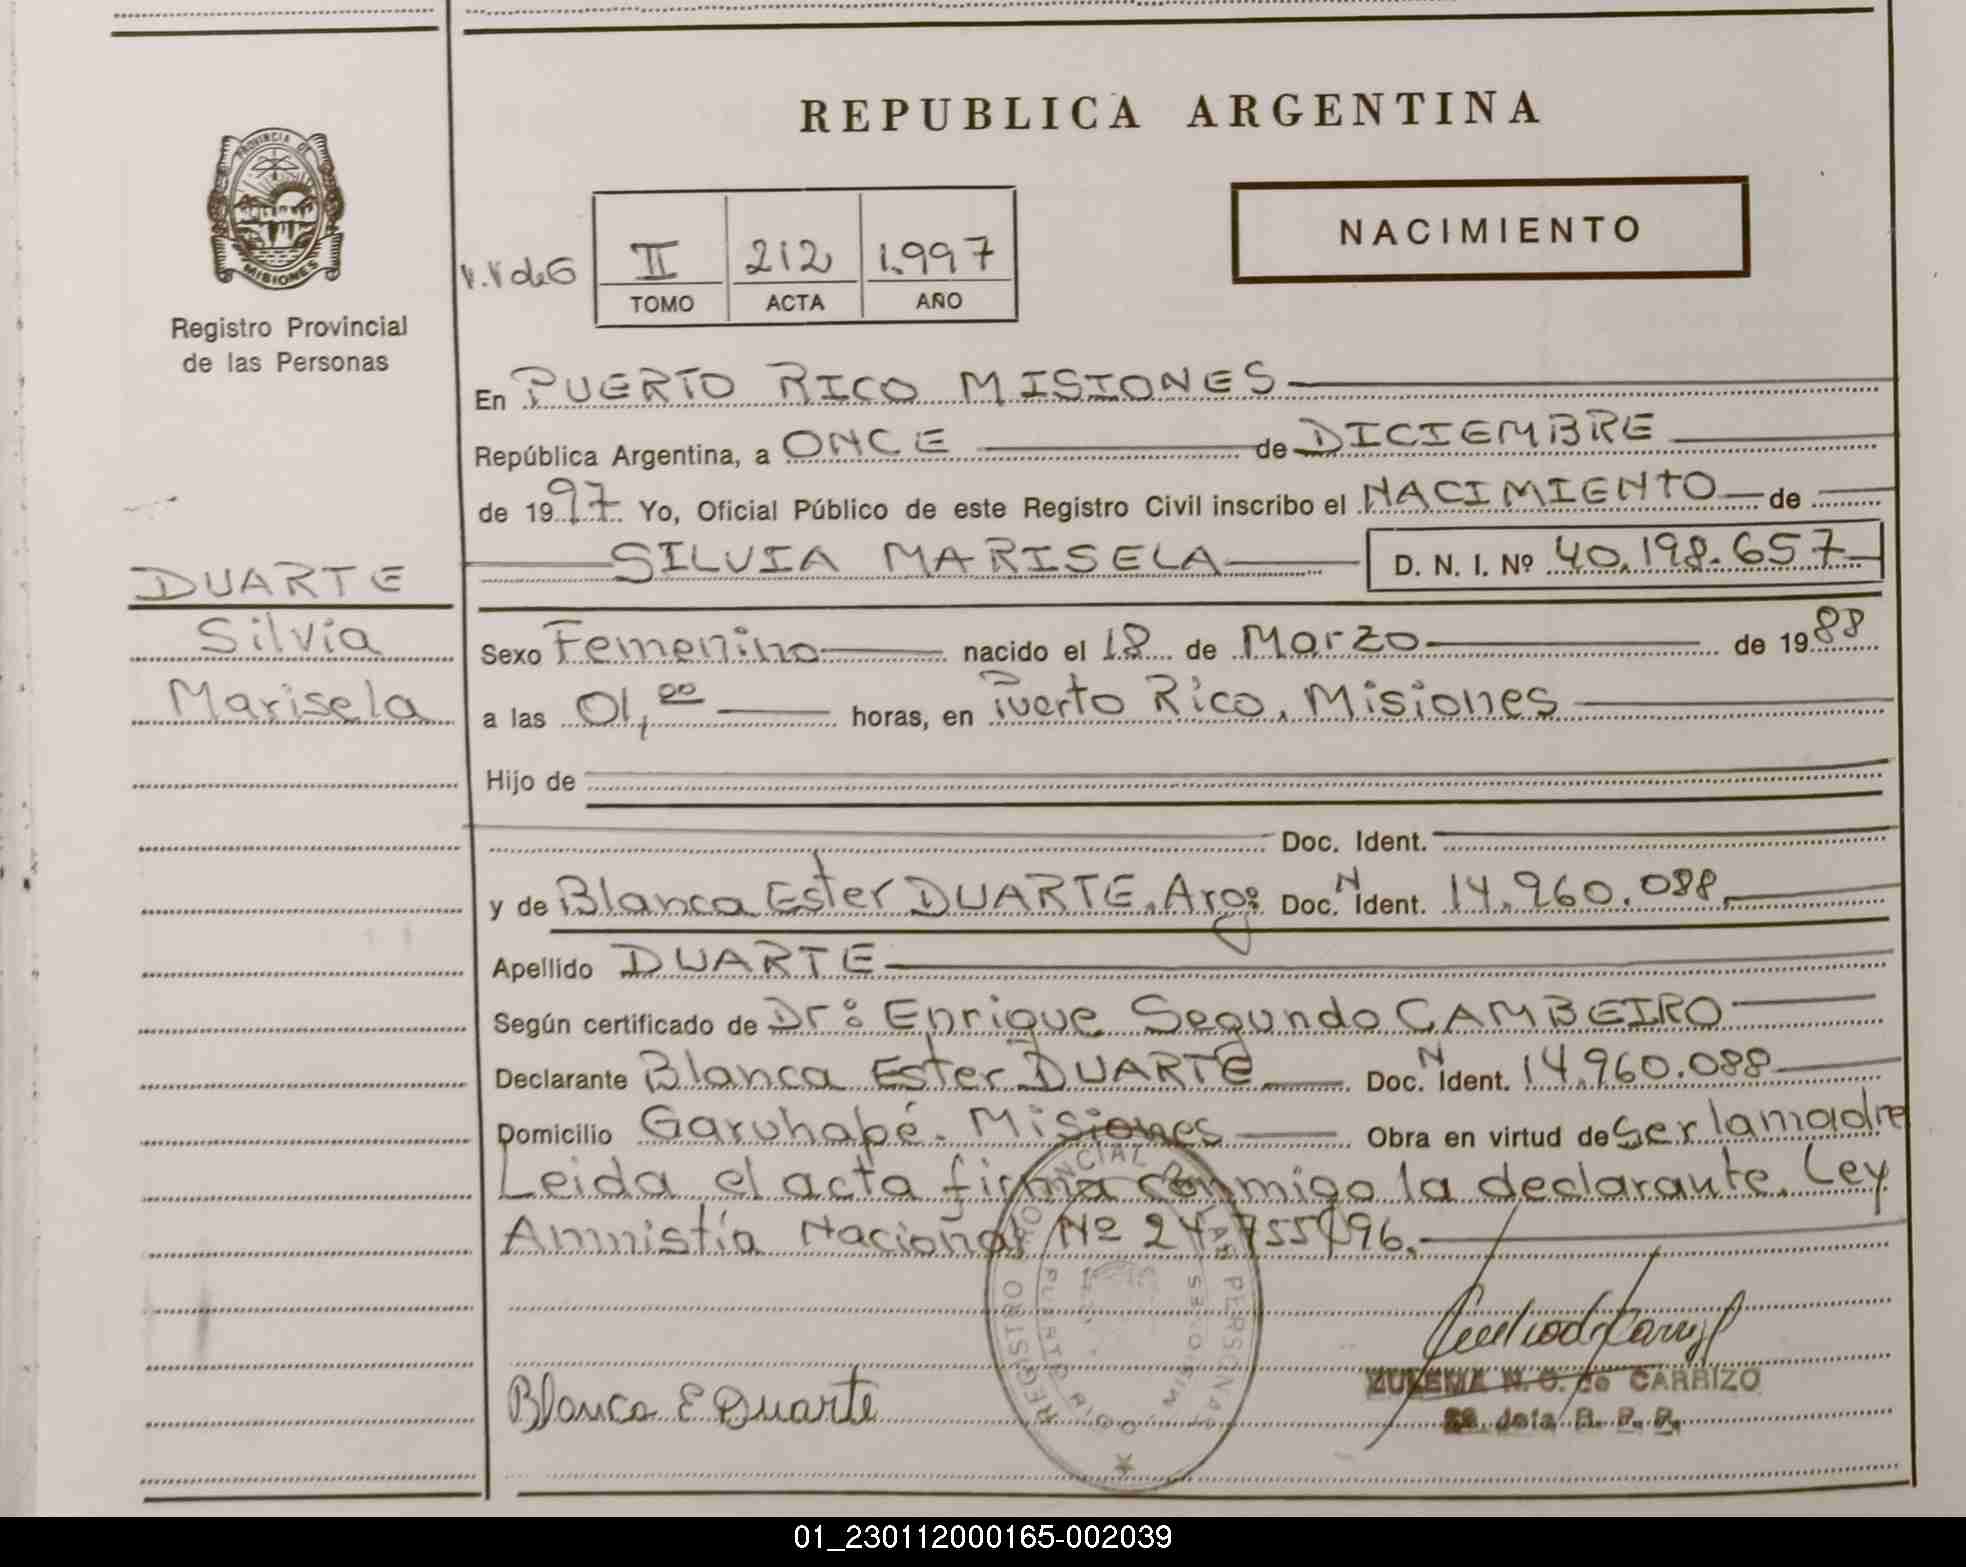 REPUBLICA ARGENTINA
PROVINCIA DE
MISIONES
Registro Provincial
de las Personas
NACIMIENTO
II 212 1.997
TOMO ACTA AÑO
En PUERTO RICO MISIONES
República Argentina, a ONCE de DICIEMBRE
de 1997 Yo, Oficial Público de este Registro Civil inscribo el NACIMIENTO de
SILVIA MARISELA D. N. I. Nº 40.198.657
DUARTE
Silvia
Marisela
Sexo Femenino nacido el 18 de Marzo de 1988
a las 01,00 horas, en Puerto Rico, Misiones
Hijo de
Doc. Ident.
y de Blanca Ester DUARTE, Arg: Doc. N Ident. 14.960.088
Apellido DUARTE
Según certificado de Dr: Enrique Segundo CAMBEIRO
Declarante Blanca Ester DUARTE Doc. N Ident. 14.960.088
Domicilio Garuhapé. Misiones Obra en virtud de Ser la madre
Leida el acta firma conmigo la declarante. Ley
Amnistía Nacional Nº 24.755/96.
REGISTRO PROVINCIAL DE LAS PERSONAS
PUERTO RICO MISIONES
Blanca E Duarte
ZULEMA N. C. de CARRIZO
Jefa R. P. P.
01_230112000165-002039